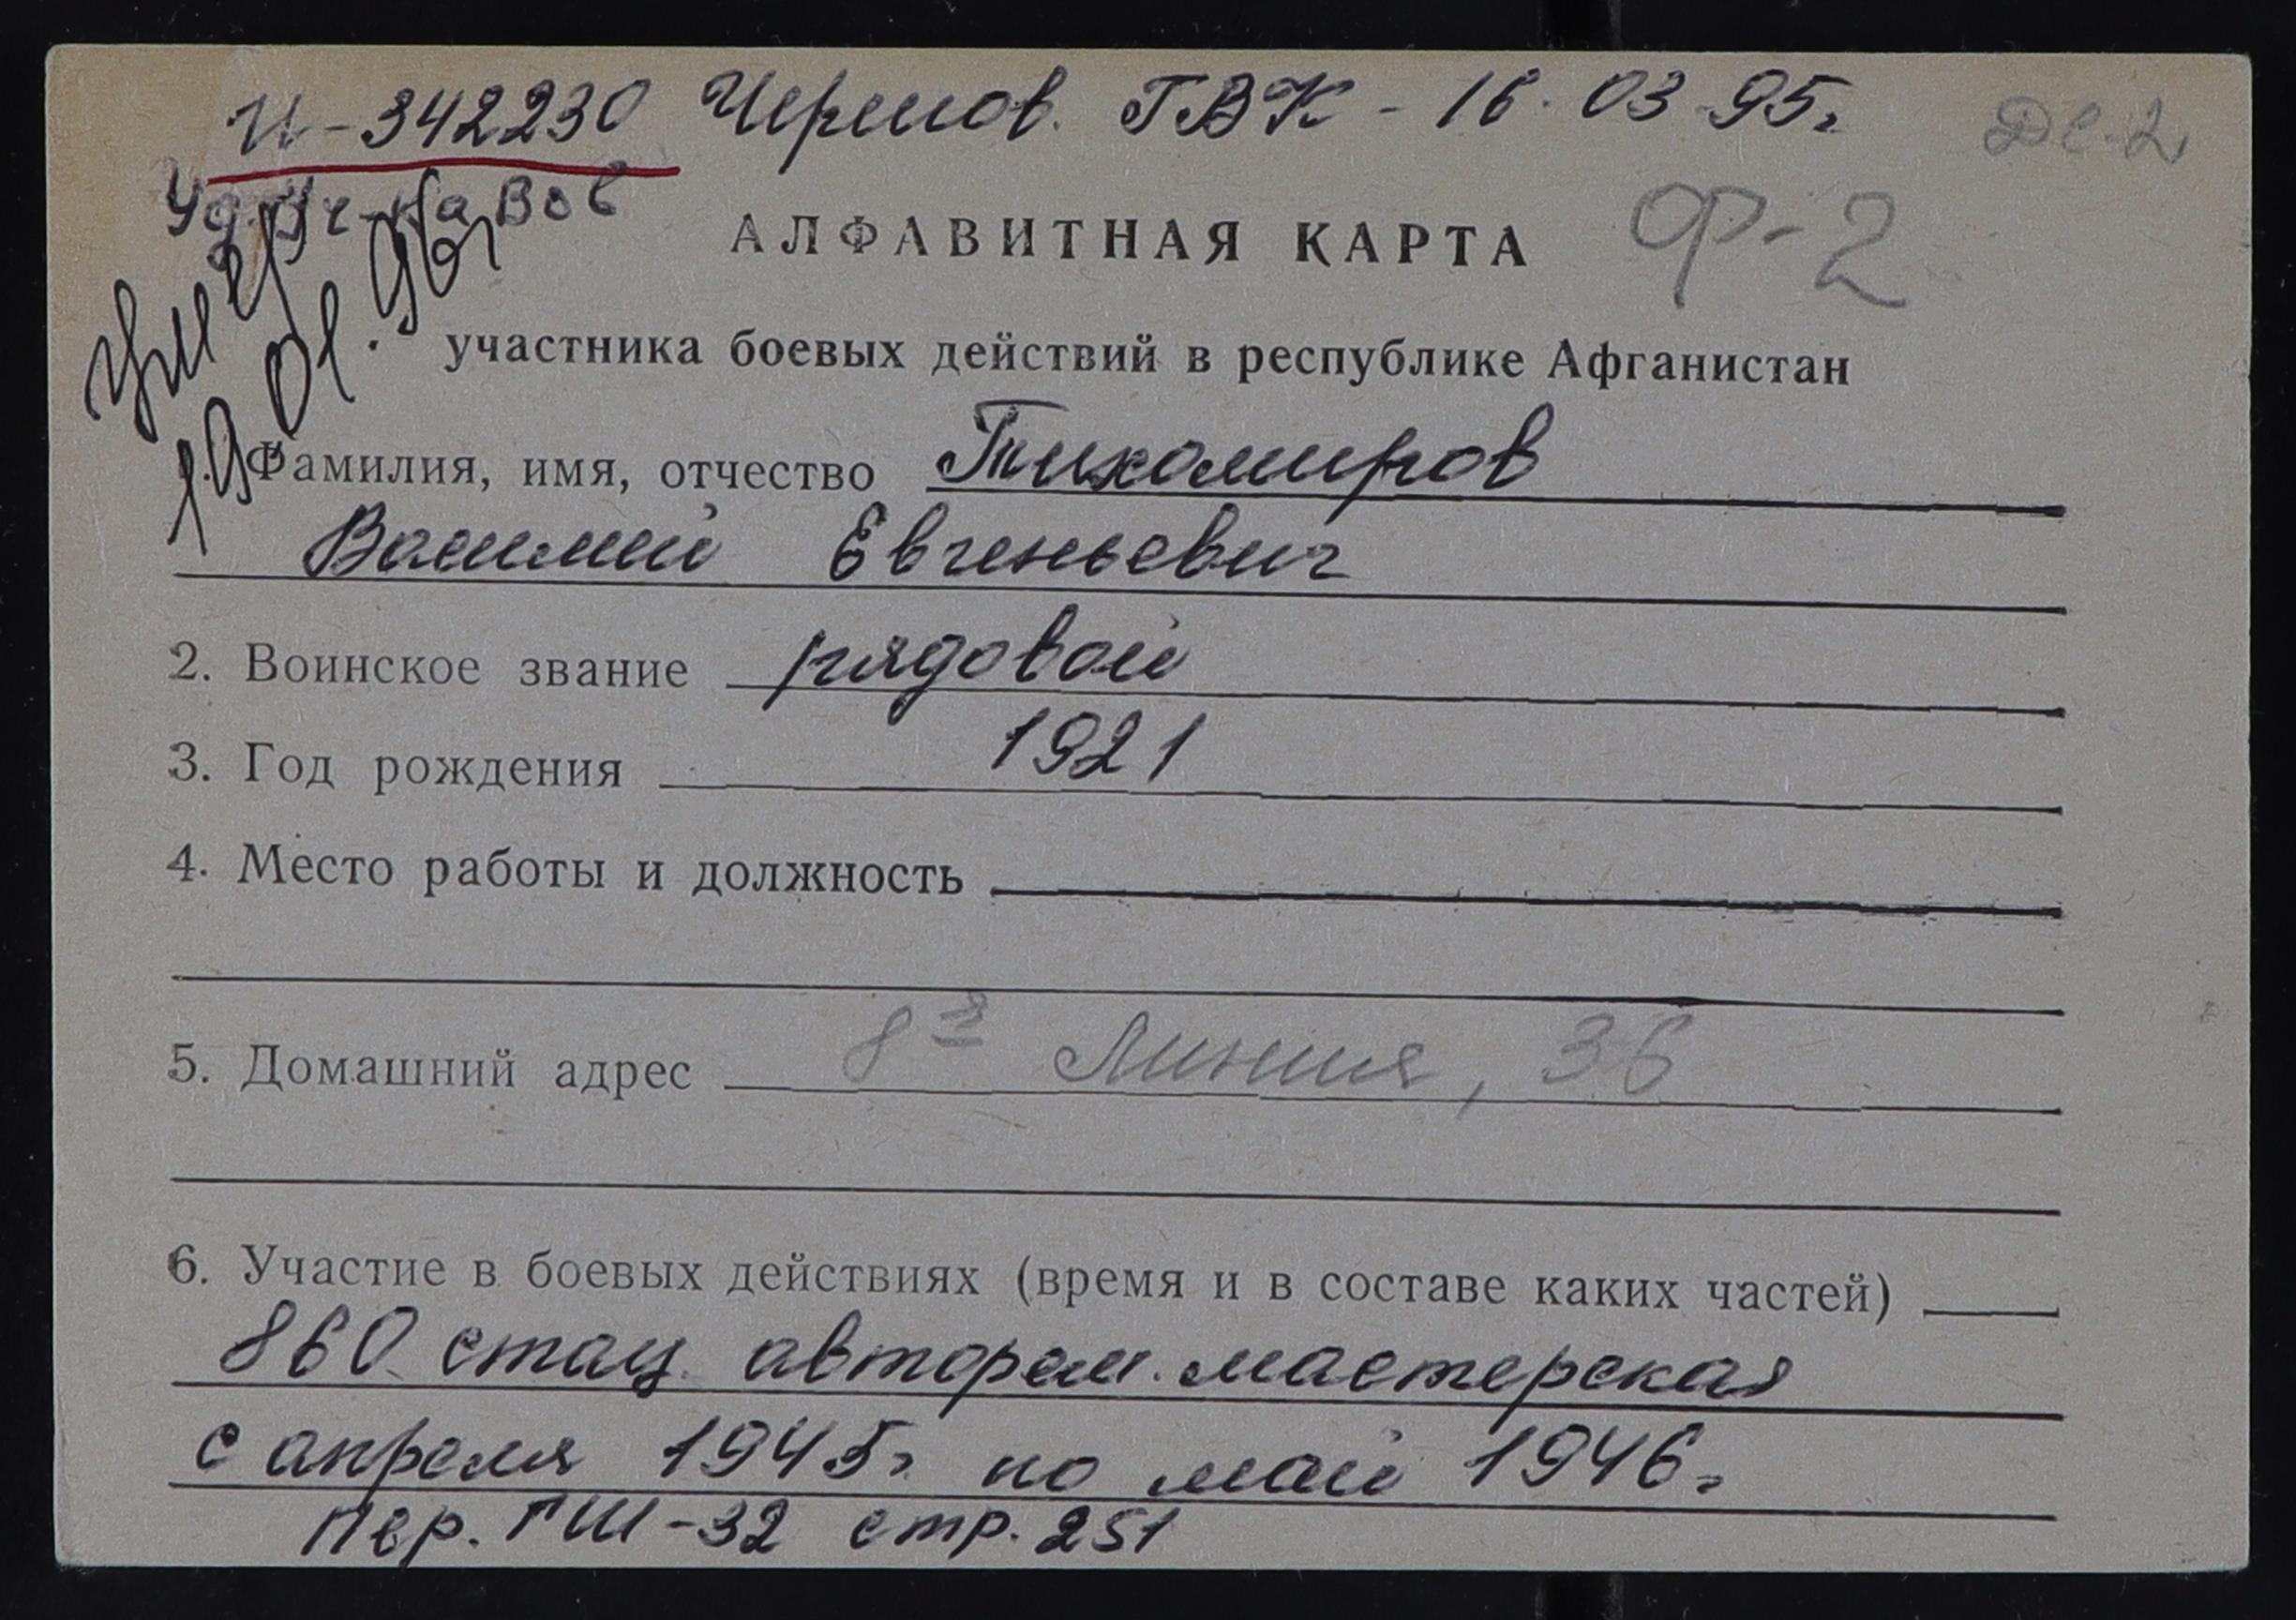 И-342230 Черепов. ГВК - 16.03.95г
Де-2
Уд. Уч-ка Вов
Ф-2
АЛФАВИТНАЯ КАРТА
умер
19.01.96г
участника боевых действий в республике Афганистан
1. Фамилия, имя, отчество Тихомиров
Василий Евгеньевич
2. Воинское звание рядовой
3. Год рождения 1921
4. Место работы и должность
5. Домашний адрес 8я Линия, 36
6. Участие в боевых действиях (время и в составе каких частей)
860 стац. авторем. мастерская
с апреля 1945г по май 1946г
Пер. ГШ-32 стр. 251